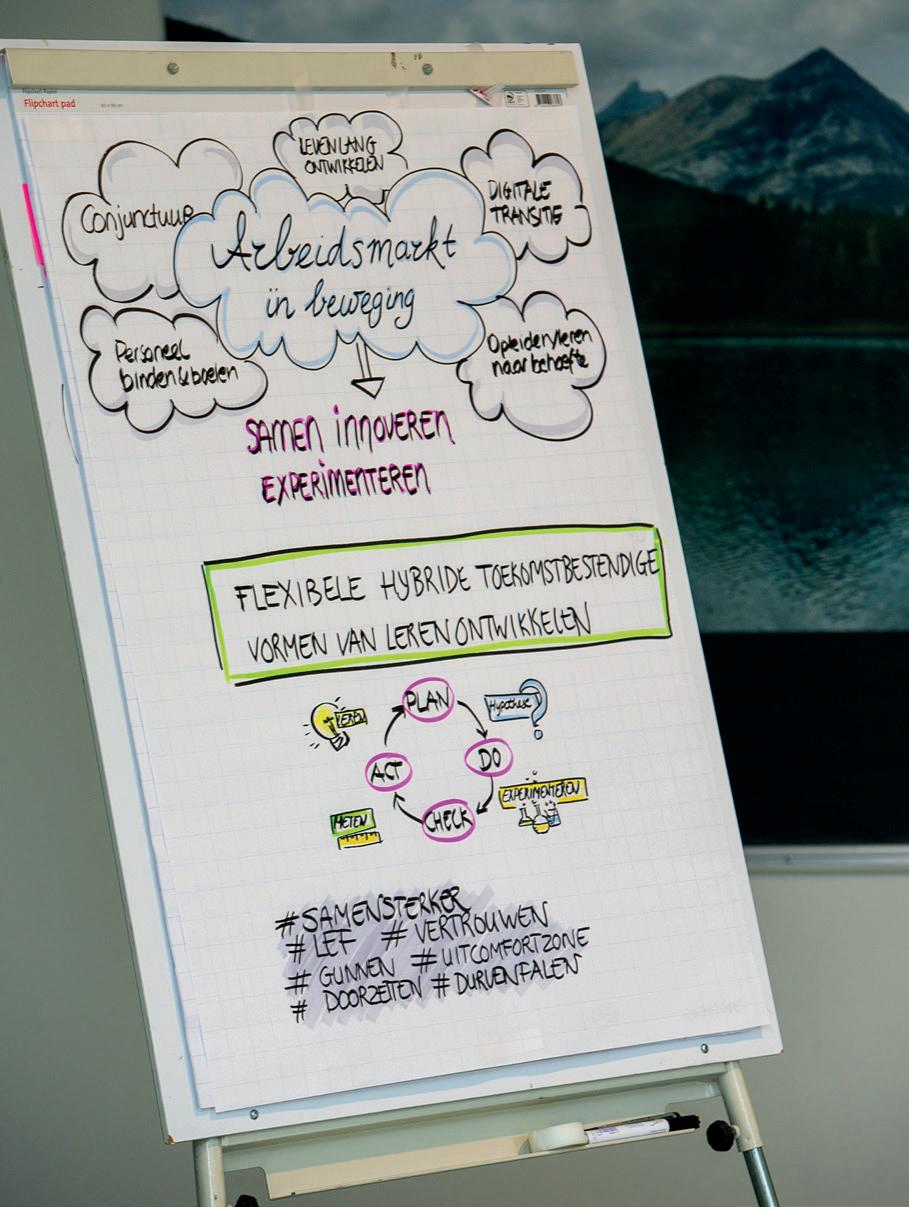 Flipchart pad
LEVENLANG
ONTWIKKELEN
Conjunctuur
DIGITALE
TRANSITIE
Arbeidsmarkt
in beweging
Personeel
binden & boeien
Opleiden/leren
naar behoefte
SAMEN INNOVEREN
EXPERIMENTEREN
FLEXIBELE HYBRIDE TOEKOMSTBESTENDIGE
VORMEN VAN LEREN ONTWIKKELEN
PLAN
LEREN
Hypothese
ACT
DO
EXPERIMENTEREN
METEN
CHECK
#SAMENSTERKER
# LEF # VERTROUWEN
# GUNNEN #UITCOMFORTZONE
# DOORZETTEN #DURVENFALEN